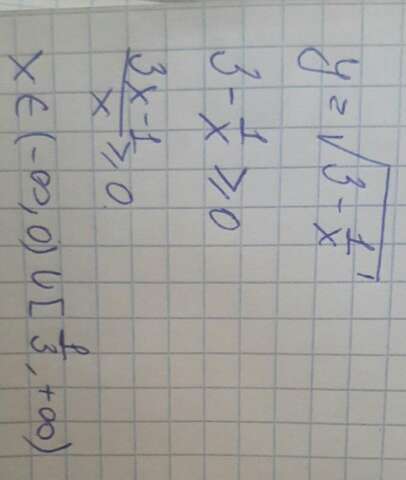 y = √(3 - 1/x)
3 - 1/x ⩾ 0
(3x - 1)/x ⩾ 0
x ∈ (-∞, 0) ∪ [1/3, +∞)